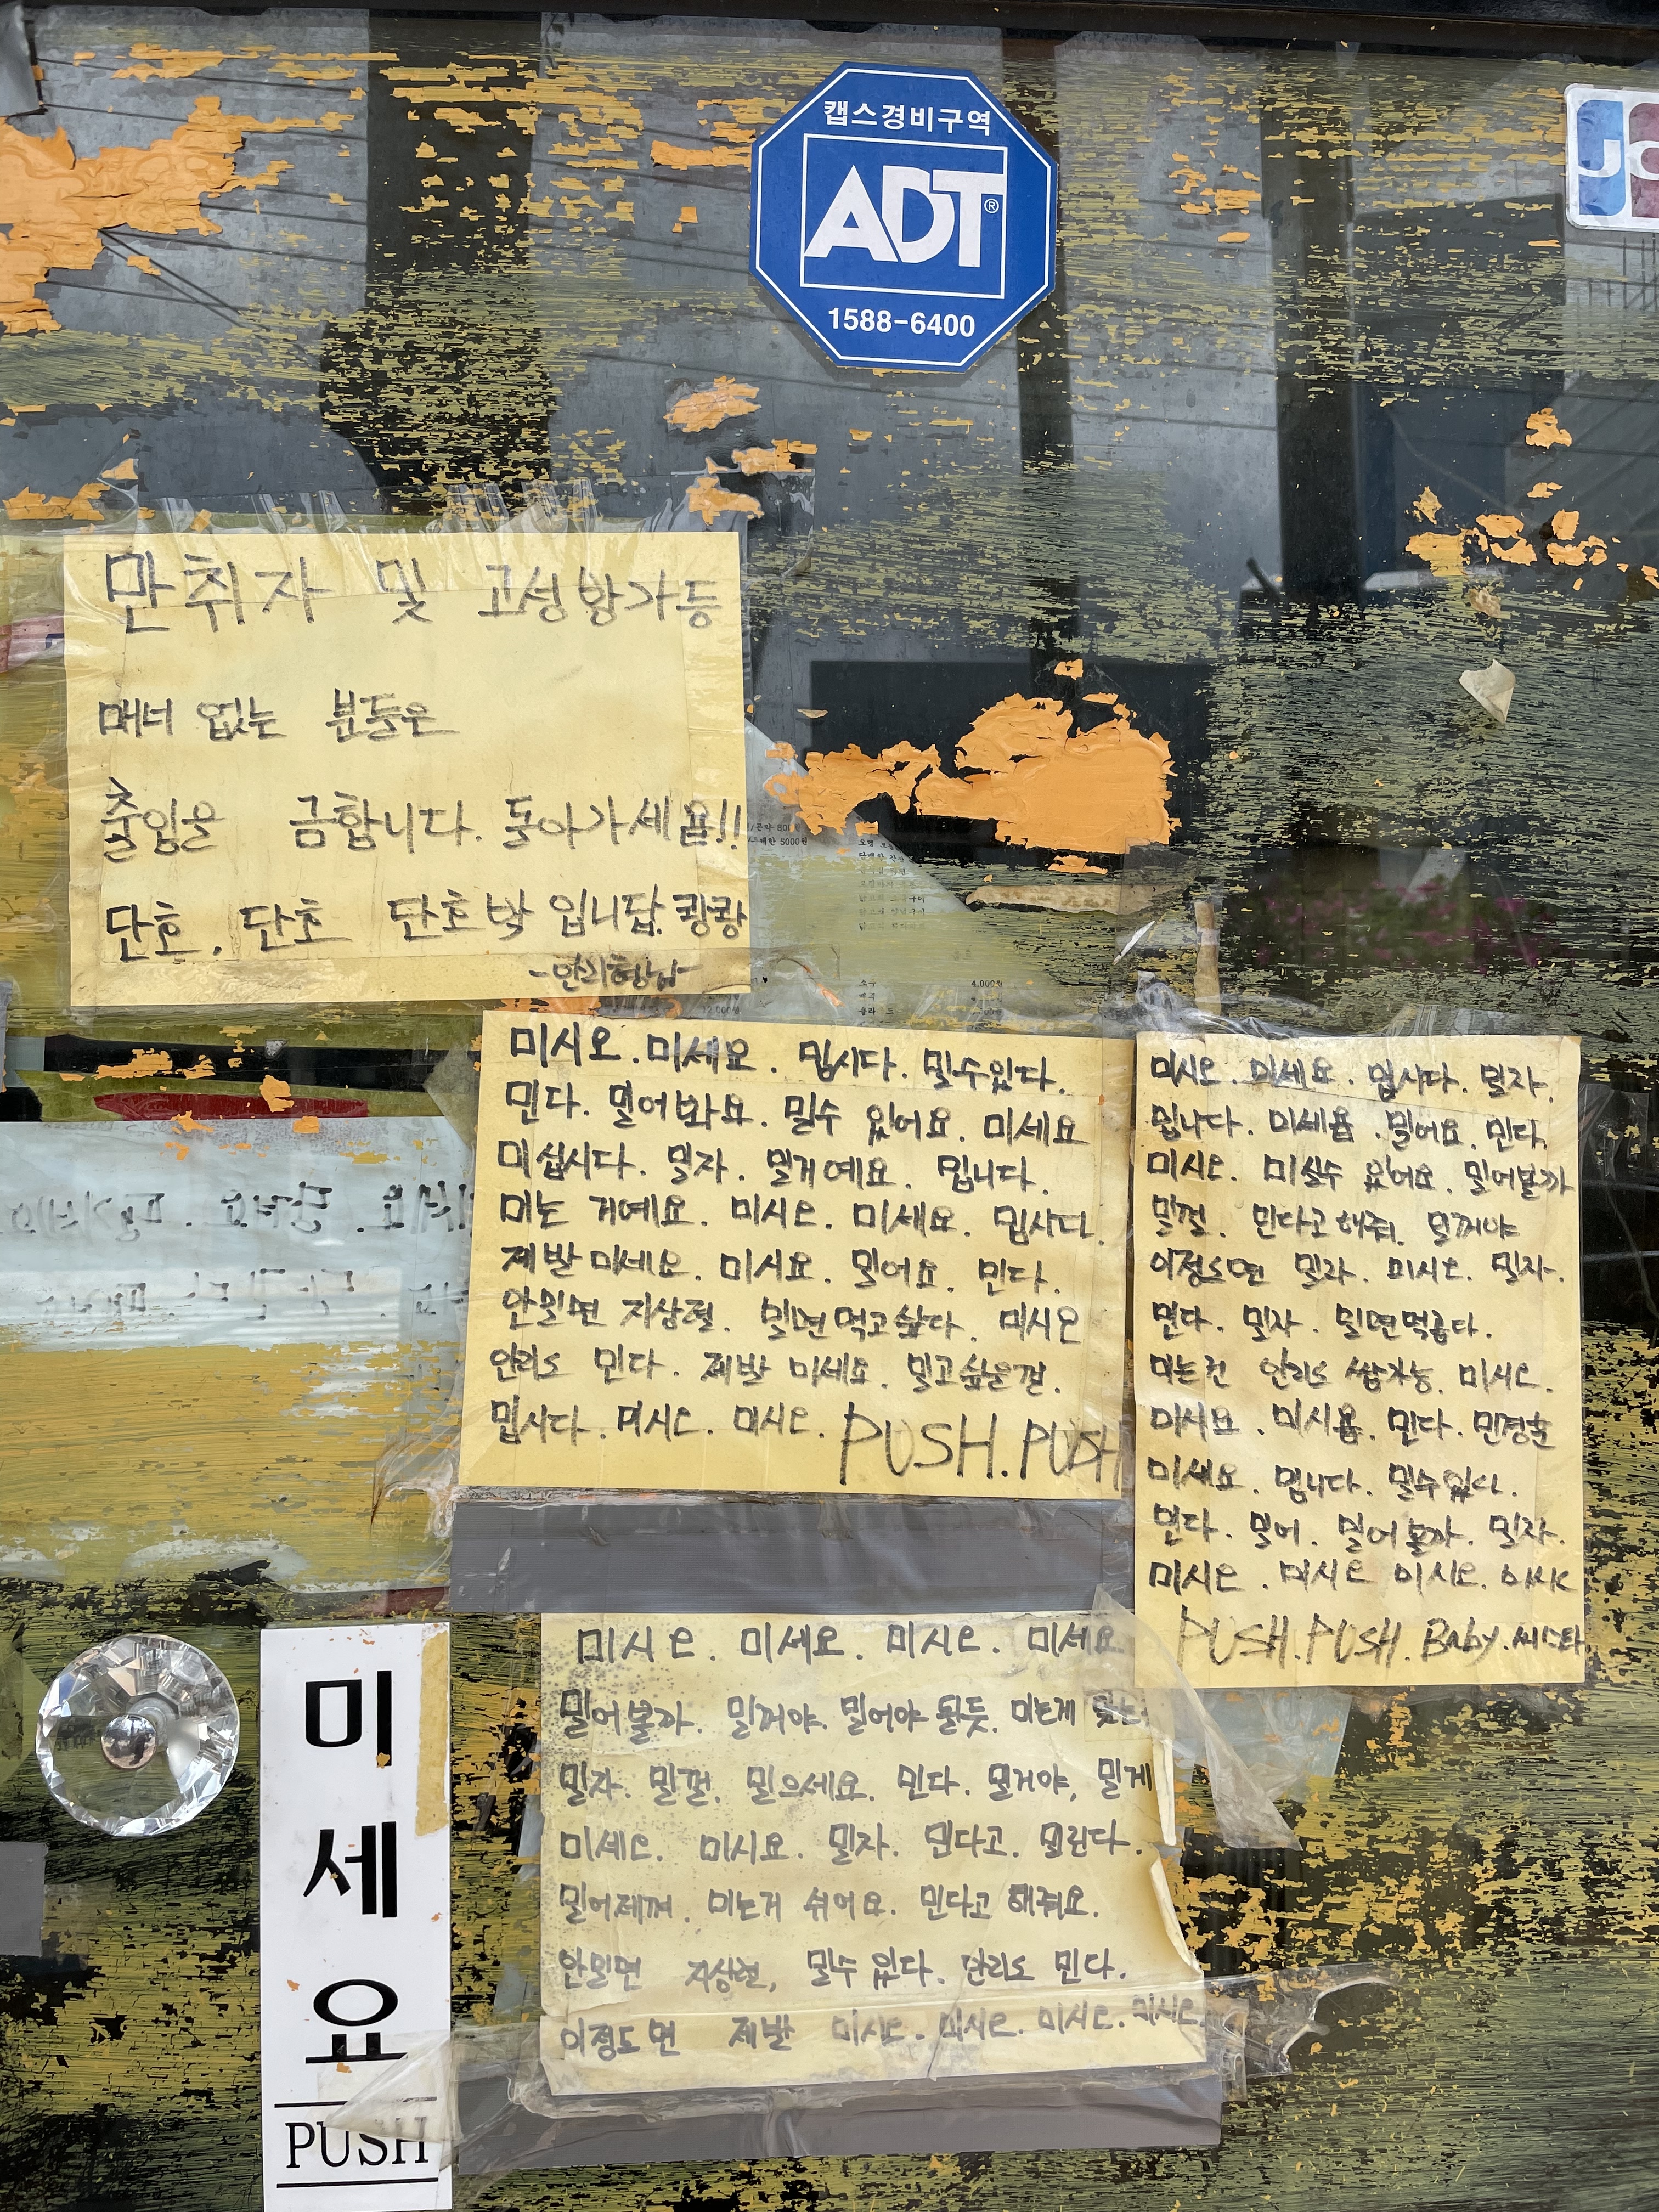 캡스경비구역
ADT®
1588-6400
만취자 및 고성방가등
매너 없는 분들은
출입을 금합니다. 돌아가세욤!!
단호, 단호 단호박 입니답. 큉큉
미시오. 미세요. 밉시다. 밀수있다.
민다. 밀어봐요. 밀수 있어요. 미세요
미십시다. 밀자. 밀게예요. 밉니다.
미는 거예요. 미시오. 미세요. 밉시다.
제발 미세요. 미시요. 밀어요. 민다.
안밀면 지상렬. 밀면 먹고싶다. 미시오
안미도 민다. 제발 미세요. 밀고싶은걸.
밉시다. 미시오. 미시오. PUSH. PUSH
미시오. 미세요. 밉시다. 밀자.
밉니다. 미세욤. 밀어요. 민다.
미시오. 미실수 있어요. 밀어볼까
밀껄. 민다고 해줘. 밀꺼야
이정도면 밀자. 미시오. 밀자.
민다. 밀자. 밀면먹곱다.
미는건 안미도 쌉가능. 미시오.
미시요. 미시욤. 민다. 민경훈
미세요. 밉니다. 밀수있다.
민다. 밀어. 밀어볼까. 밀자.
미시오. 미시오 미시오.
PUSH. PUSH. Baby. 씨스타
미시오. 미세요. 미시오. 미세요
밀어볼까. 밀꺼야. 밀어야 될듯. 미는게
밀자. 밀껄. 밀으세요. 민다. 밀거야, 밀게
미세오. 미시요. 밀자. 민다고. 밀린다.
밀어제껴. 미는거 쉬어요. 민다고 해줘요.
안밀면 지상렬, 밀수 있다. 민다.
이정도면 제발 미시오. 미시오. 미시오. 미시오.
미
세
요
PUSH